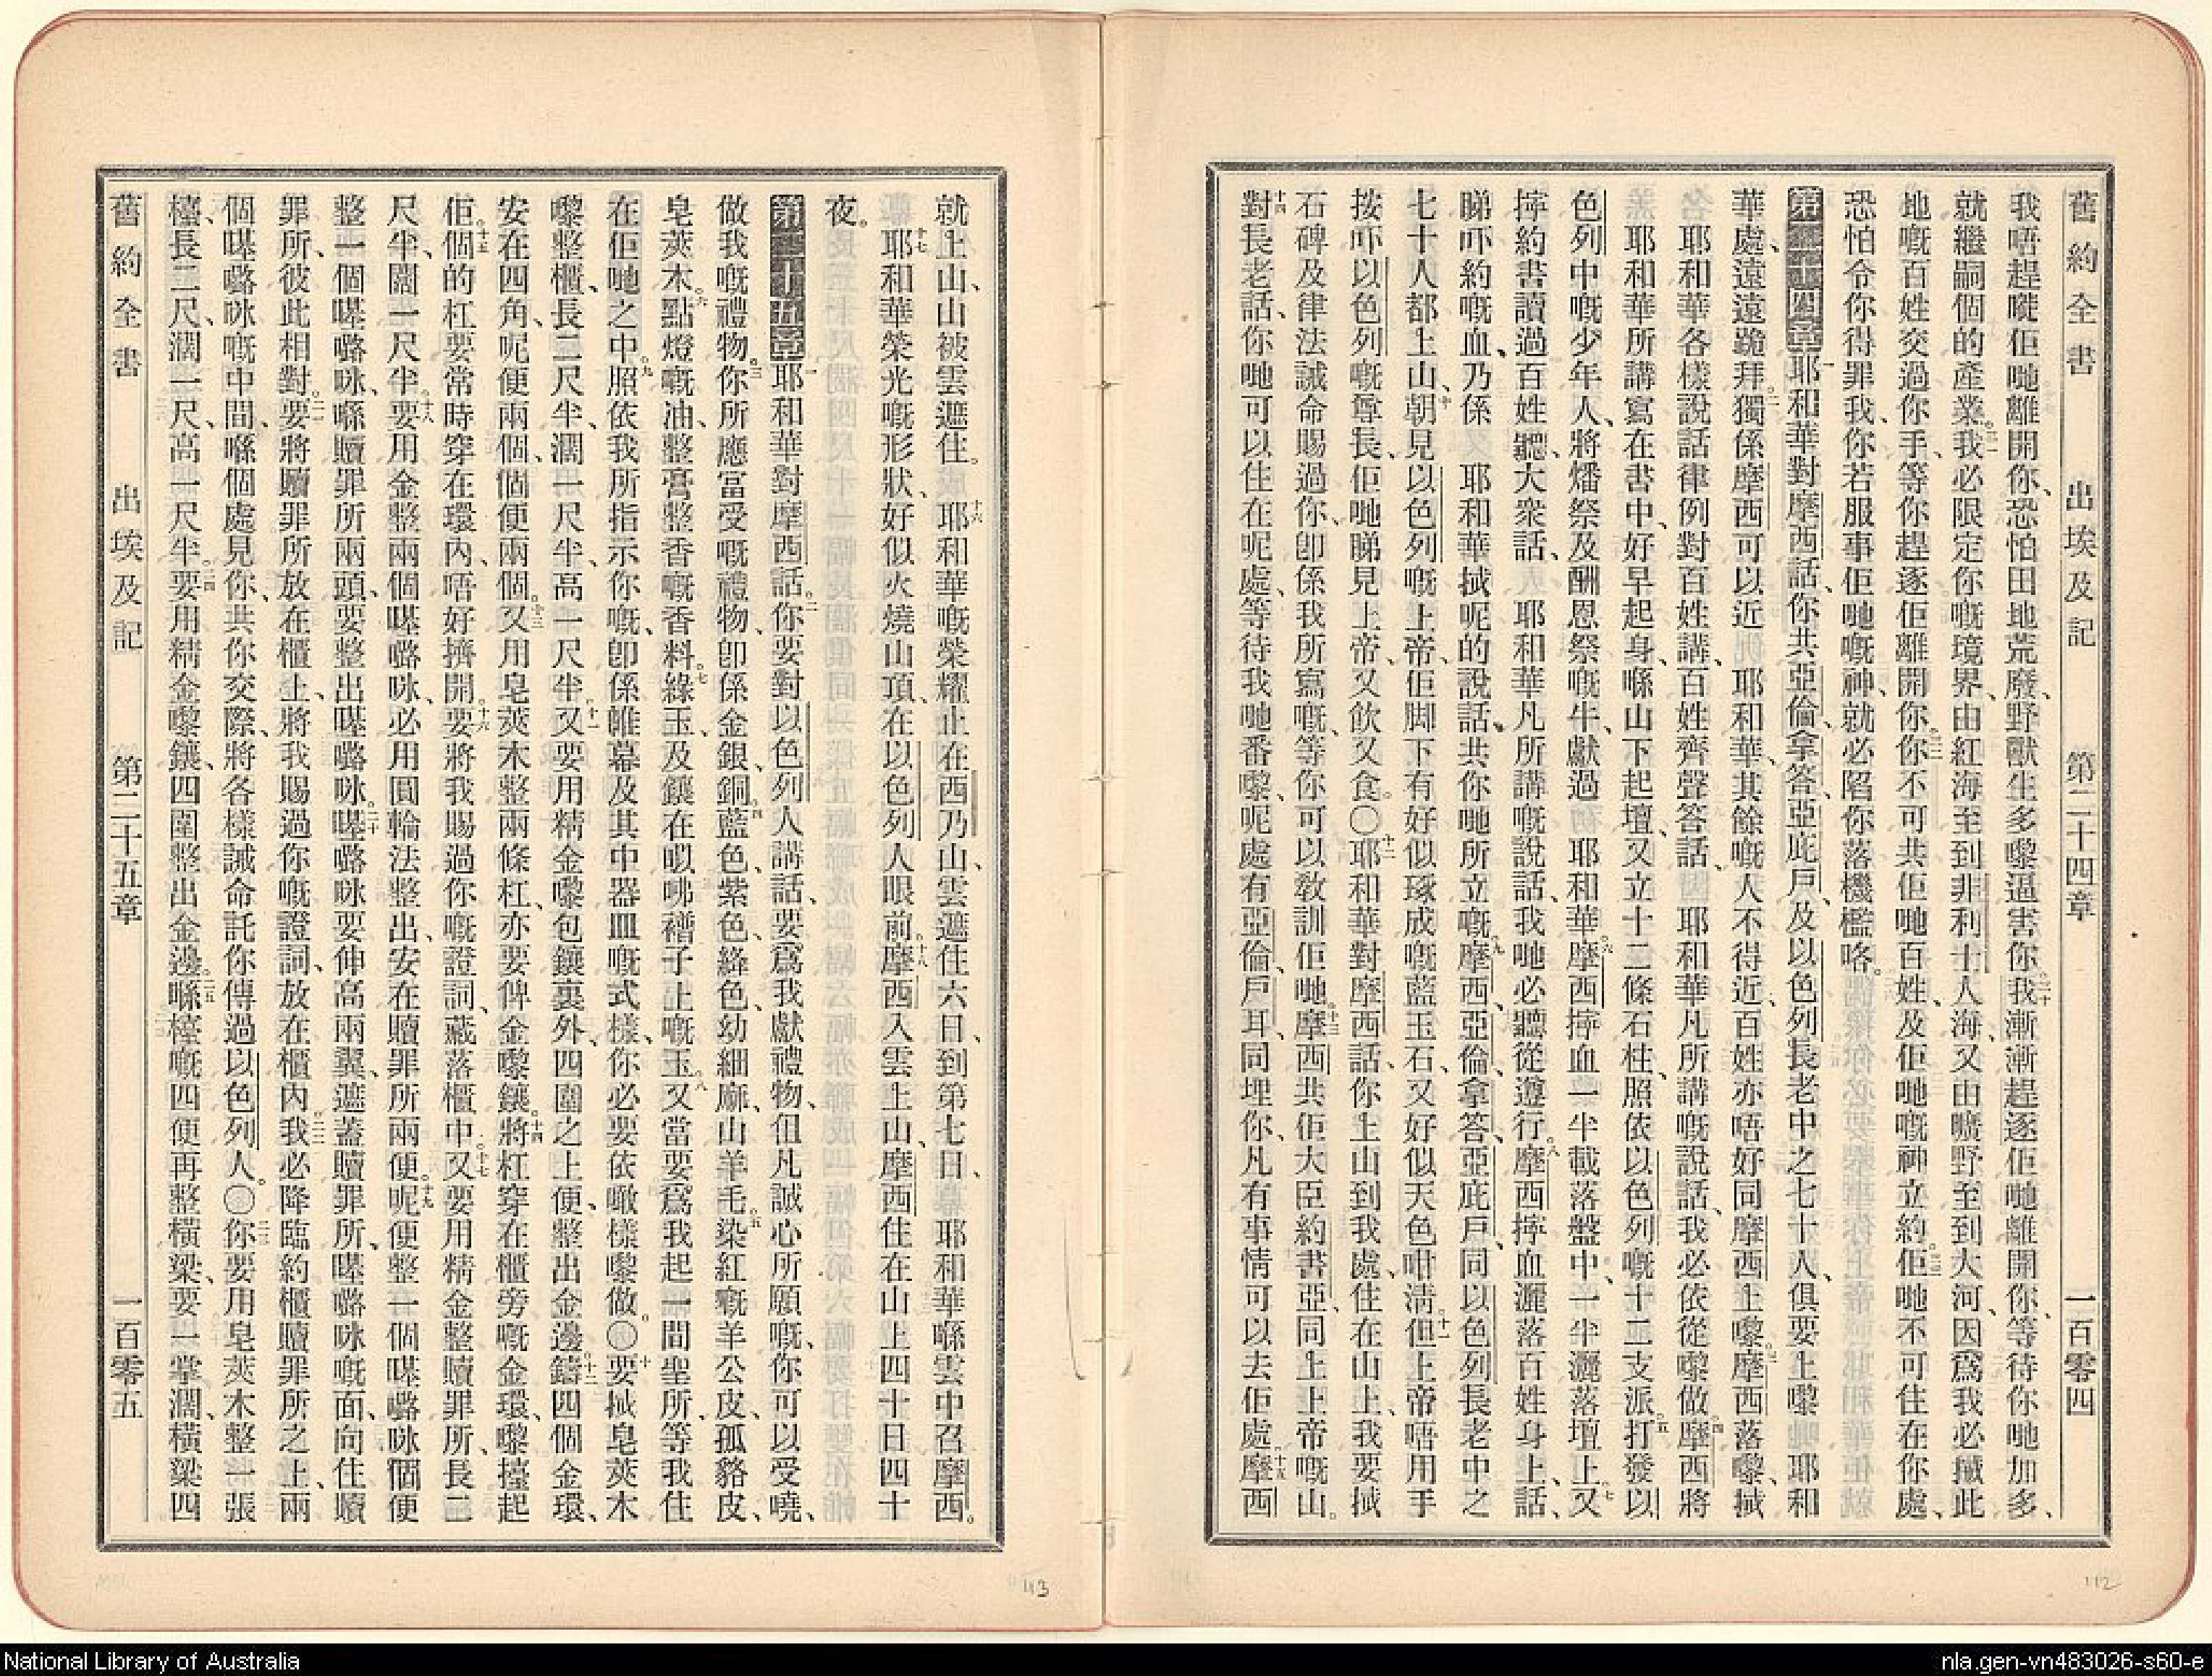 舊約全書 出埃及記 第二十四章 一百零四
我唔趕嘥佢哋離開你、恐怕田地荒廢、野獸生多嚟逼害你、三十我漸漸趕逐佢哋離開你、等待你哋加多、
就繼嗣個的產業。三一我必限定你嘅境界、由紅海至到非利士人海、又由曠野至到大河、因爲我必摵此
地嘅百姓交過你手、等你趕逐佢離開你。三二你不可共佢哋百姓、及佢哋嘅神立約。三三佢哋不可住在你處、
恐怕令你得罪我、你若服事佢哋嘅神、就必陷你落機檻咯。
第二十四章一耶和華對摩西話、你共亞倫、拿答、亞庇戶、及以色列長老中之七十人、俱要上嚟 耶和
華處、遠遠跪拜、二獨係摩西可以近 耶和華、其餘嘅人不得近、百姓亦唔好同摩西上嚟。三摩西落嚟、摵
耶和華各樣說話律例對百姓講、百姓齊聲答話、 耶和華凡所講嘅說話、我必依從嚟做。四摩西將
耶和華所講寫在書中、好早起身、喺山下起壇、又立十二條石柱、照依以色列嘅十二支派。五打發以
色列中嘅少年人、將燔祭及酬恩祭嘅牛、獻過 耶和華。六摩西擰血一半載落盤中、一半灑落壇上。七又
擰約書讀過百姓聽、大衆話、 耶和華凡所講嘅說話、我哋必聽從遵行。八摩西擰血灑落百姓身上、話、
睇吓約嘅血、乃係 耶和華摵呢的說話、共你哋所立嘅。九摩西、亞倫、拿答、亞庇戶、同以色列長老中之
七十人都上山、十朝見以色列嘅上帝、佢脚下有好似琢成嘅藍玉石、又好似天色咁淸。十一但上帝唔用手
按吓以色列嘅尊長、佢哋睇見上帝、又飲又食。〇十二耶和華對摩西話、你上山到我處、住在山上、我要摵
石碑及律法誡命賜過你、卽係我所寫嘅、等你可以敎訓佢哋。十三摩西共佢大臣約書亞、同上上帝嘅山。
十四對長老話、你哋可以住在呢處、等待我哋番嚟、呢處有亞倫、戶耳、同埋你、凡有事情可以去佢處。十五摩西
就上山、山被雲遮住。十六耶和華嘅榮耀止在西乃山、雲遮住六日、到第七日、 耶和華喺雲中召摩西。
十七耶和華榮光嘅形狀、好似火燒山頂、在以色列人眼前。十八摩西入雲上山、摩西住在山上四十日四十
夜。
第二十五章一耶和華對摩西話、二你要對以色列人講話、要爲我獻禮物、但凡誠心所願嘅、你可以受嘵、
做我嘅禮物。三你所應當受嘅禮物、卽係金銀銅、四藍色、紫色、絳色、幼細蔴、山羊毛、五染紅嘅羊公皮、孤貉皮、
皂莢木。六點燈嘅油、整膏整香嘅香料。七綠玉、及鑲在㗇咈襘子上嘅玉。八又當要爲我起一間聖所、等我住
在佢哋之中。九照依我所指示你嘅、卽係帷幕及其中器皿嘅式樣、你必要依噉樣嚟做。〇十要摵皂莢木
嚟整櫃、長二尺半、濶一尺半、高一尺半。十一又要用精金嚟包鑲裏外、四圍之上便、整出金邊。十二鑄四個金環、
安在四角、呢便兩個、個便兩個。十三又用皂莢木整兩條杠、亦要俾金嚟鑲。十四將杠穿在櫃旁嘅金環、嚟擡起
佢。十五個的杠要常時穿在環內、唔好擠開。十六要將我賜過你嘅證詞、藏落櫃中。十七又要用精金整贖罪所、長二
尺半、闊一尺半。十八要用金整兩個㗱嚕㕲、必用圓輪法整出、安在贖罪所兩便。十九呢便整一個㗱嚕㕲、個便
整一個㗱嚕㕲、喺贖罪所兩頭、要整出㗱嚕㕲。二十㗱嚕㕲要伸高兩翼、遮蓋贖罪所、㗱嚕㕲嘅面、向住贖
罪所、彼此相對。二一要將贖罪所放在櫃上、將我賜過你嘅證詞、放在櫃內。二二我必降臨約櫃贖罪所之上、兩
個㗱嚕㕲嘅中間、喺個處見你、共你交際、將各樣誡命託你傳過以色列人。〇二三你要用皂莢木整一張
檯、長二尺、濶一尺、高一尺半。二四要用精金嚟鑲、四圍整出金邊。二五喺檯嘅四便再整橫梁、要一掌濶、橫梁四
舊約全書 出埃及記 第二十五章 一百零五
113
112
National Library of Australia
nla.gen-vn483026-s60-e